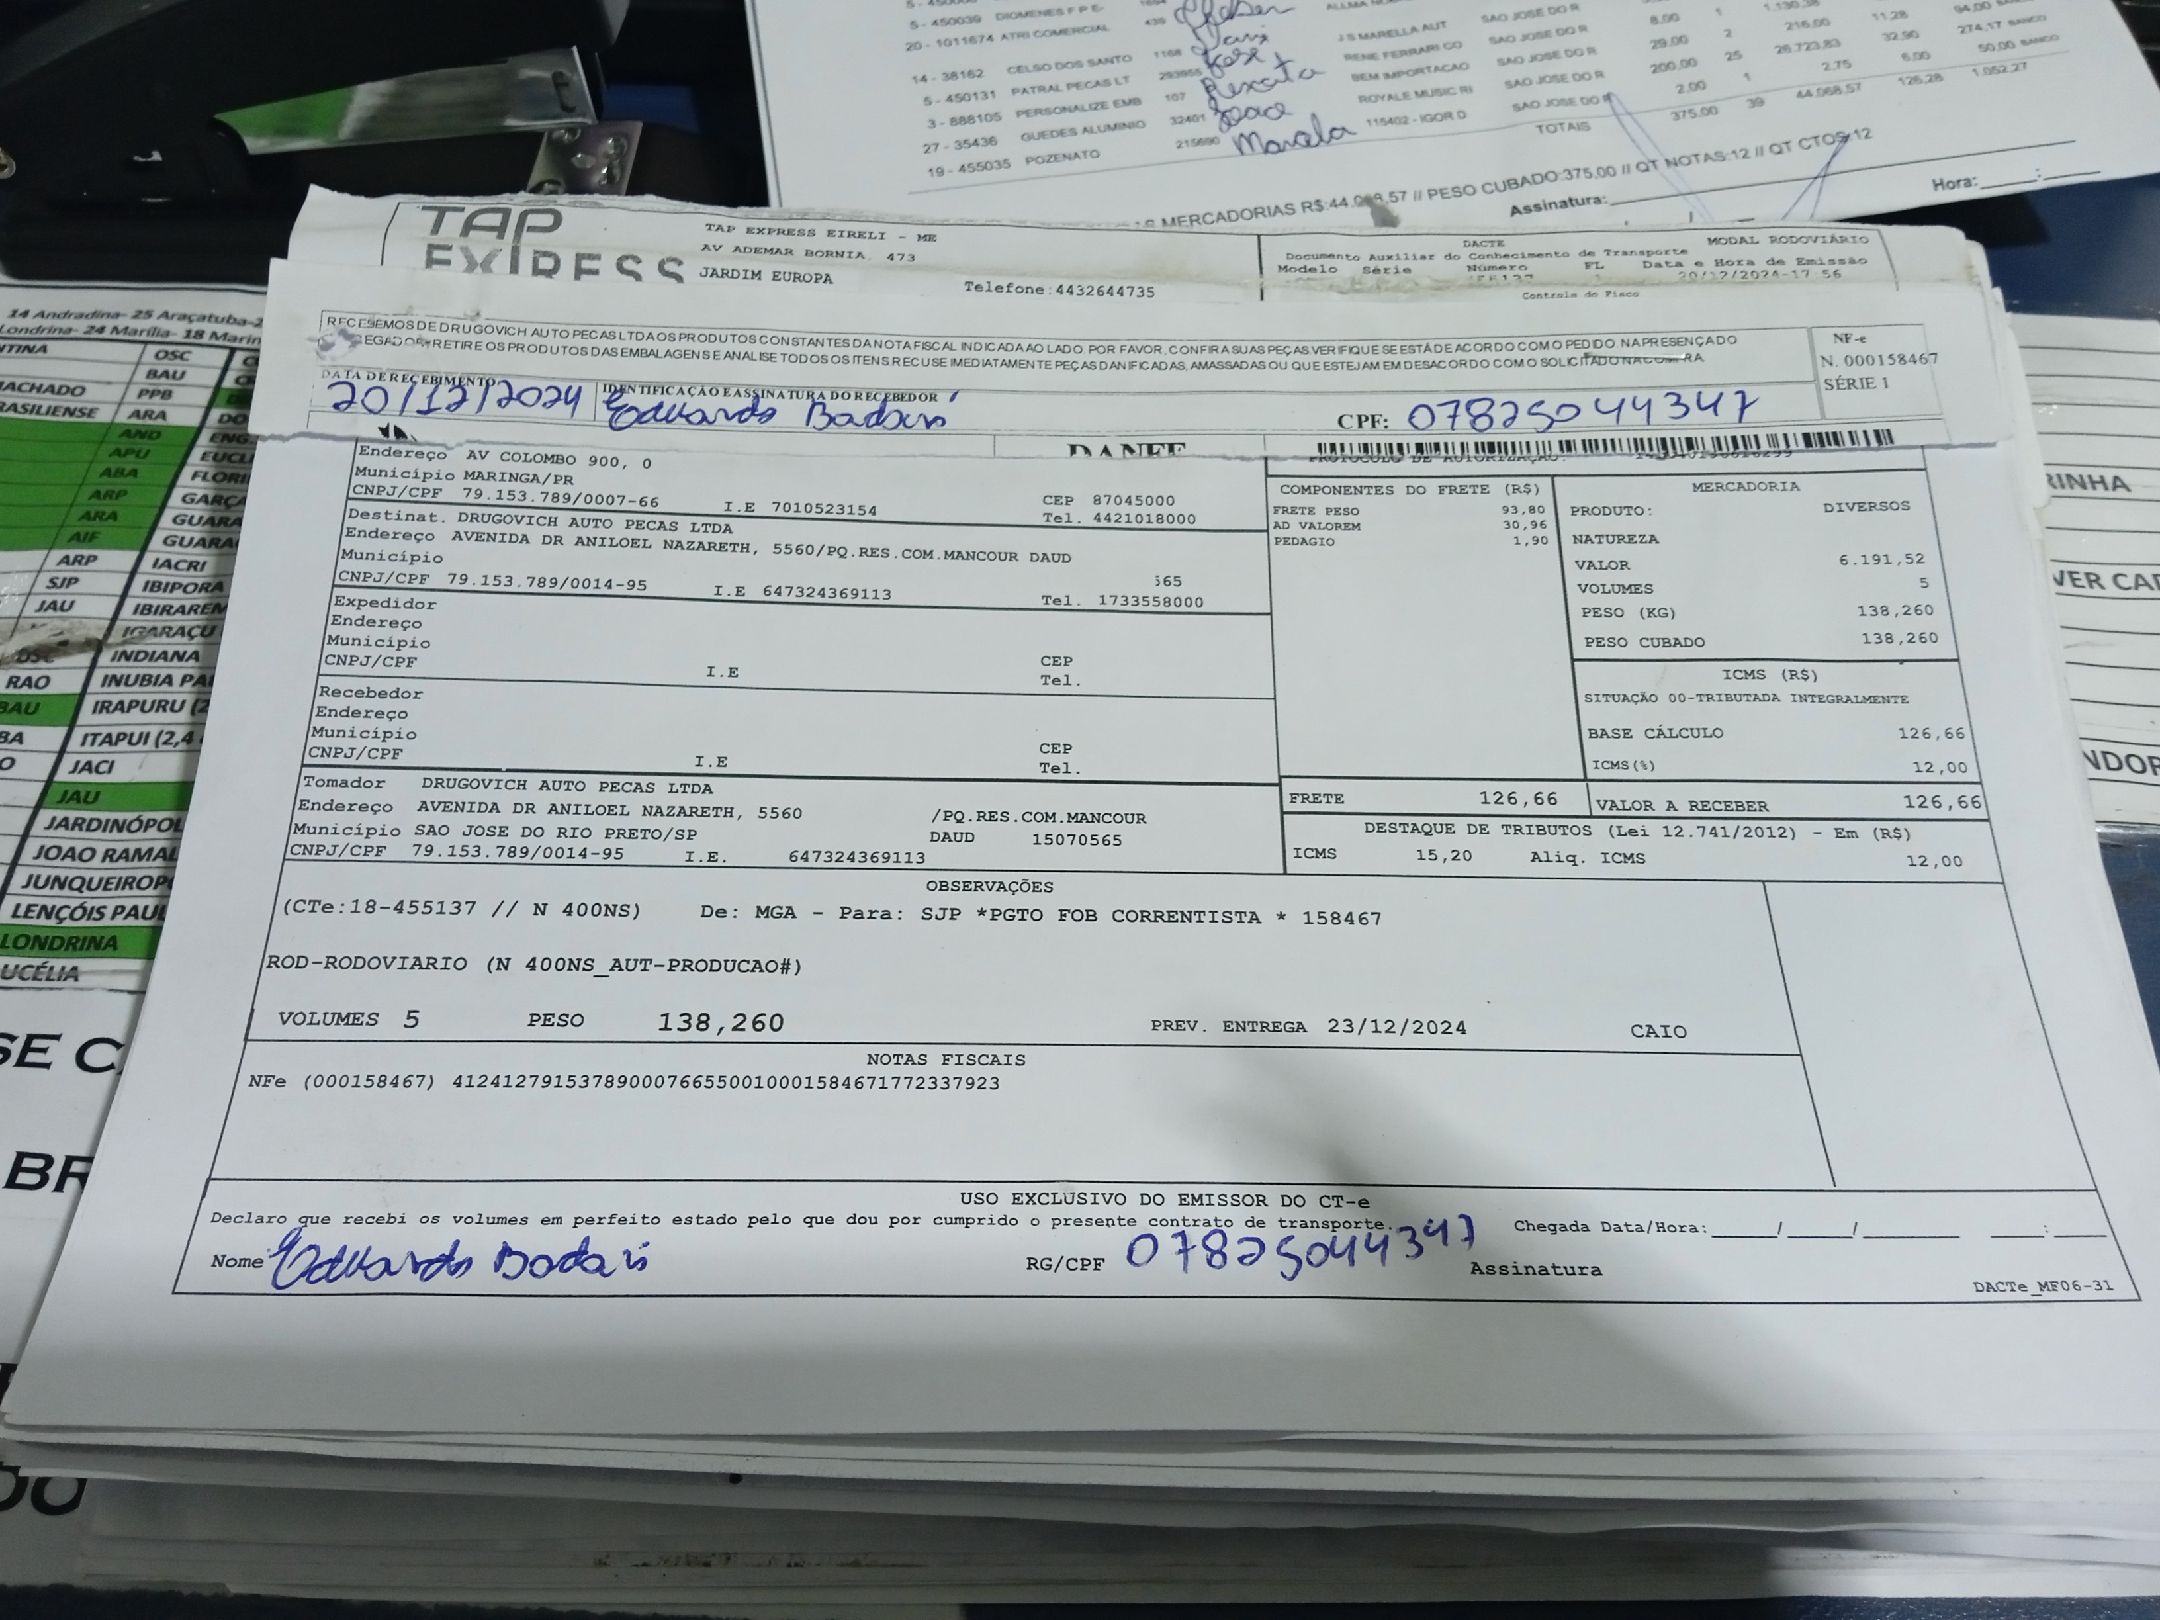 5 - 450039 DIOMENES F P E
20 - 1011674 ATRI COMERCIAL 439
14 - 38162 CELSO DOS SANTO 1168 J S MARELLA AUT SAO JOSE DO R 8.00 1 1.130,38 94,00
5 - 450131 PATRAL PECAS LT 293955 Jose RENE FERRARI CO SAO JOSE DO R 29.00 2 216,00 11,28 274,17 BANCO
3 - 888105 PERSONALIZE EMB 107 Renata BEM IMPORTACAO SAO JOSE DO R 200.00 25 26.723,83 32,90 50,00 BANCO
27 - 35436 GUEDES ALUMINIO 32401 Joao ROYALE MUSIC RI SAO JOSE DO R 2.00 1 2,75 6,00
19 - 455035 POZENATO 215690 Marcela 115402 - IGOR D SAO JOSE DO R
TOTAIS 375.00 39 44.068,57 126,28 1.052,27
MERCADORIAS R$:44.068,57 // PESO CUBADO:375,00 // QT NOTAS:12 // QT CTOS:12
Assinatura: Hora:
TAP EXPRESS
TAP EXPRESS EIRELI - ME
AV ADEMAR BORNIA, 473
JARDIM EUROPA
Telefone:4432644735
DACTE MODAL RODOVIÁRIO
Documento Auxiliar do Conhecimento de Transporte
Modelo Série Número FL Data e Hora de Emissão
20/12/2024-17:56
Controle do Fisco
RECEBEMOS DE DRUGOVICH AUTO PECAS LTDA OS PRODUTOS CONSTANTES DA NOTA FISCAL INDICADA AO LADO. POR FAVOR, CONFIRA SUAS PEÇAS VERIFIQUE SE ESTÁ DE ACORDO COM O PEDIDO. NA PRESENÇA DO
EGADOR RETIRE OS PRODUTOS DAS EMBALAGENS E ANALISE TODOS OS ITENS RECUSE IMEDIATAMENTE PEÇAS DANIFICADAS, AMASSADAS OU QUE ESTEJAM EM DESACORDO COM O SOLICITADO NA COMPRA.
NF-e
N. 000158467
SÉRIE 1
DATA DE RECEBIMENTO IDENTIFICAÇÃO E ASSINATURA DO RECEBEDOR
20/12/2024 Eduardo Badari CPF: 07825044347
DANFE
Endereço AV COLOMBO 900, 0
Município MARINGA/PR
CNPJ/CPF 79.153.789/0007-66 I.E 7010523154
CEP 87045000
Tel. 4421018000
Destinat. DRUGOVICH AUTO PECAS LTDA
Endereço AVENIDA DR ANILOEL NAZARETH, 5560/PQ.RES.COM.MANCOUR DAUD
Município 565
CNPJ/CPF 79.153.789/0014-95 I.E 647324369113 Tel. 1733558000
Expedidor
Endereço
Município
CNPJ/CPF I.E
CEP
Tel.
Recebedor
Endereço
Município
CNPJ/CPF I.E
CEP
Tel.
Tomador DRUGOVICH AUTO PECAS LTDA
Endereço AVENIDA DR ANILOEL NAZARETH, 5560 /PQ.RES.COM.MANCOUR
Município SAO JOSE DO RIO PRETO/SP DAUD 15070565
CNPJ/CPF 79.153.789/0014-95 I.E. 647324369113
COMPONENTES DO FRETE (R$)
FRETE PESO 93,80
AD VALOREM 30,96
PEDAGIO 1,90
MERCADORIA
PRODUTO: DIVERSOS
NATUREZA
VALOR 6.191,52
VOLUMES 5
PESO (KG) 138,260
PESO CUBADO 138,260
ICMS (R$)
SITUAÇÃO 00-TRIBUTADA INTEGRALMENTE
BASE CÁLCULO 126,66
ICMS(%) 12,00
FRETE 126,66 VALOR A RECEBER 126,66
DESTAQUE DE TRIBUTOS (Lei 12.741/2012) - Em (R$)
ICMS 15,20 Aliq. ICMS 12,00
OBSERVAÇÕES
(CTe:18-455137 // N 400NS) De: MGA - Para: SJP *PGTO FOB CORRENTISTA * 158467
ROD-RODOVIARIO (N 400NS_AUT-PRODUCAO#)
VOLUMES 5 PESO 138,260 PREV. ENTREGA 23/12/2024 CAIO
NOTAS FISCAIS
NFe (000158467) 41241279153789000766550010001584671772337923
USO EXCLUSIVO DO EMISSOR DO CT-e
Declaro que recebi os volumes em perfeito estado pelo que dou por cumprido o presente contrato de transporte.
Chegada Data/Hora: / / :
Nome Eduardo Badari RG/CPF 07825044347 Assinatura
DACTe_MF06-31
14 Andradina- 25 Araçatuba-2
Londrina- 24 Marília- 18 Marin
OSC
BAU
MACHADO PPB
RASILIENSE ARA DO
AND ENG
APU EUCL
ABA FLORI
ARP GARÇA
ARA GUARA
AIF GUARA
ARP IACRI
SJP IBIPORA
JAU IBIRAREM
IGARAÇU
OSC INDIANA
RAO INUBIA PA
BAU IRAPURU (2
BA ITAPUI (2,4
O JACI
JAU
JARDINÓPOL
JOAO RAMAL
JUNQUEIROP
LENÇÓIS PAUL
LONDRINA
UCÉLIA
SE C
BR
DO
RINHA
VER CAR
NDOR